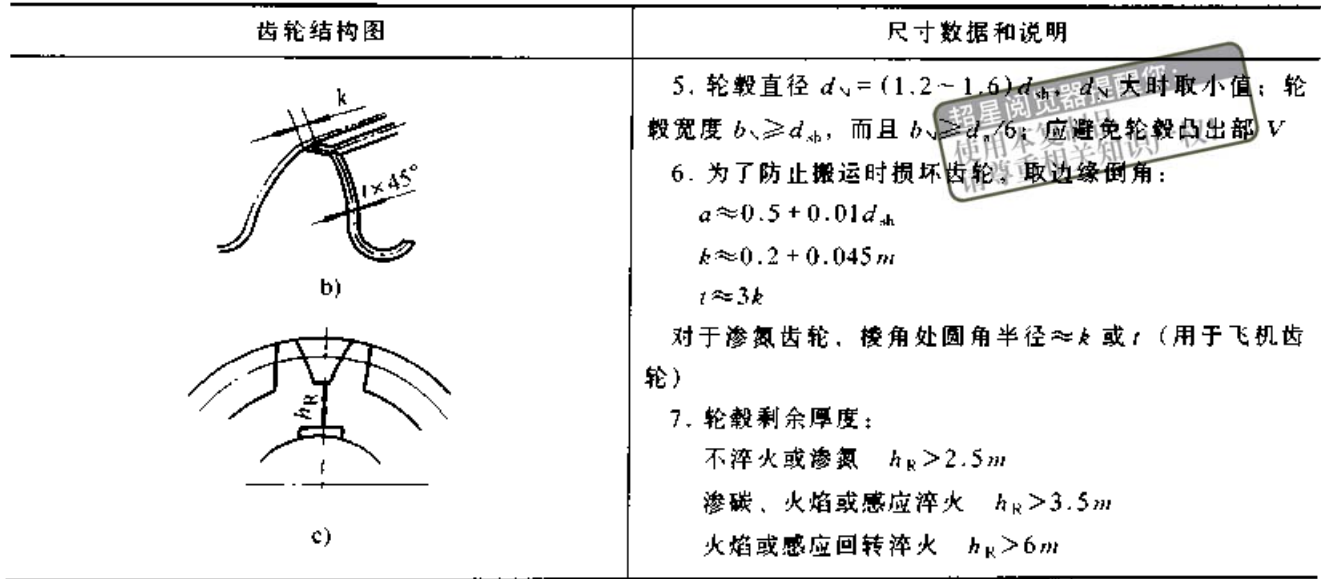 齿轮结构图
尺寸数据和说明
k
t×45°
b)
h_R
c)
5. 轮毂直径 d_N=(1.2~1.6)d_sh, d_N大时取小值；轮
毂宽度 b_N≥d_sh，而且 b_N≥d_a/6；应避免轮毂凸出部 V
6. 为了防止搬运时损坏齿轮，取边缘倒角：
a≈0.5+0.01d_sh
k≈0.2+0.045m
t≈3k
对于渗氮齿轮、棱角处圆角半径≈k 或 t（用于飞机齿
轮）
7. 轮毂剩余厚度：
不淬火或渗氮 h_R>2.5m
渗碳、火焰或感应淬火 h_R>3.5m
火焰或感应回转淬火 h_R>6m
超星阅览器提醒您：
使用本
请尊重相关知识产权！